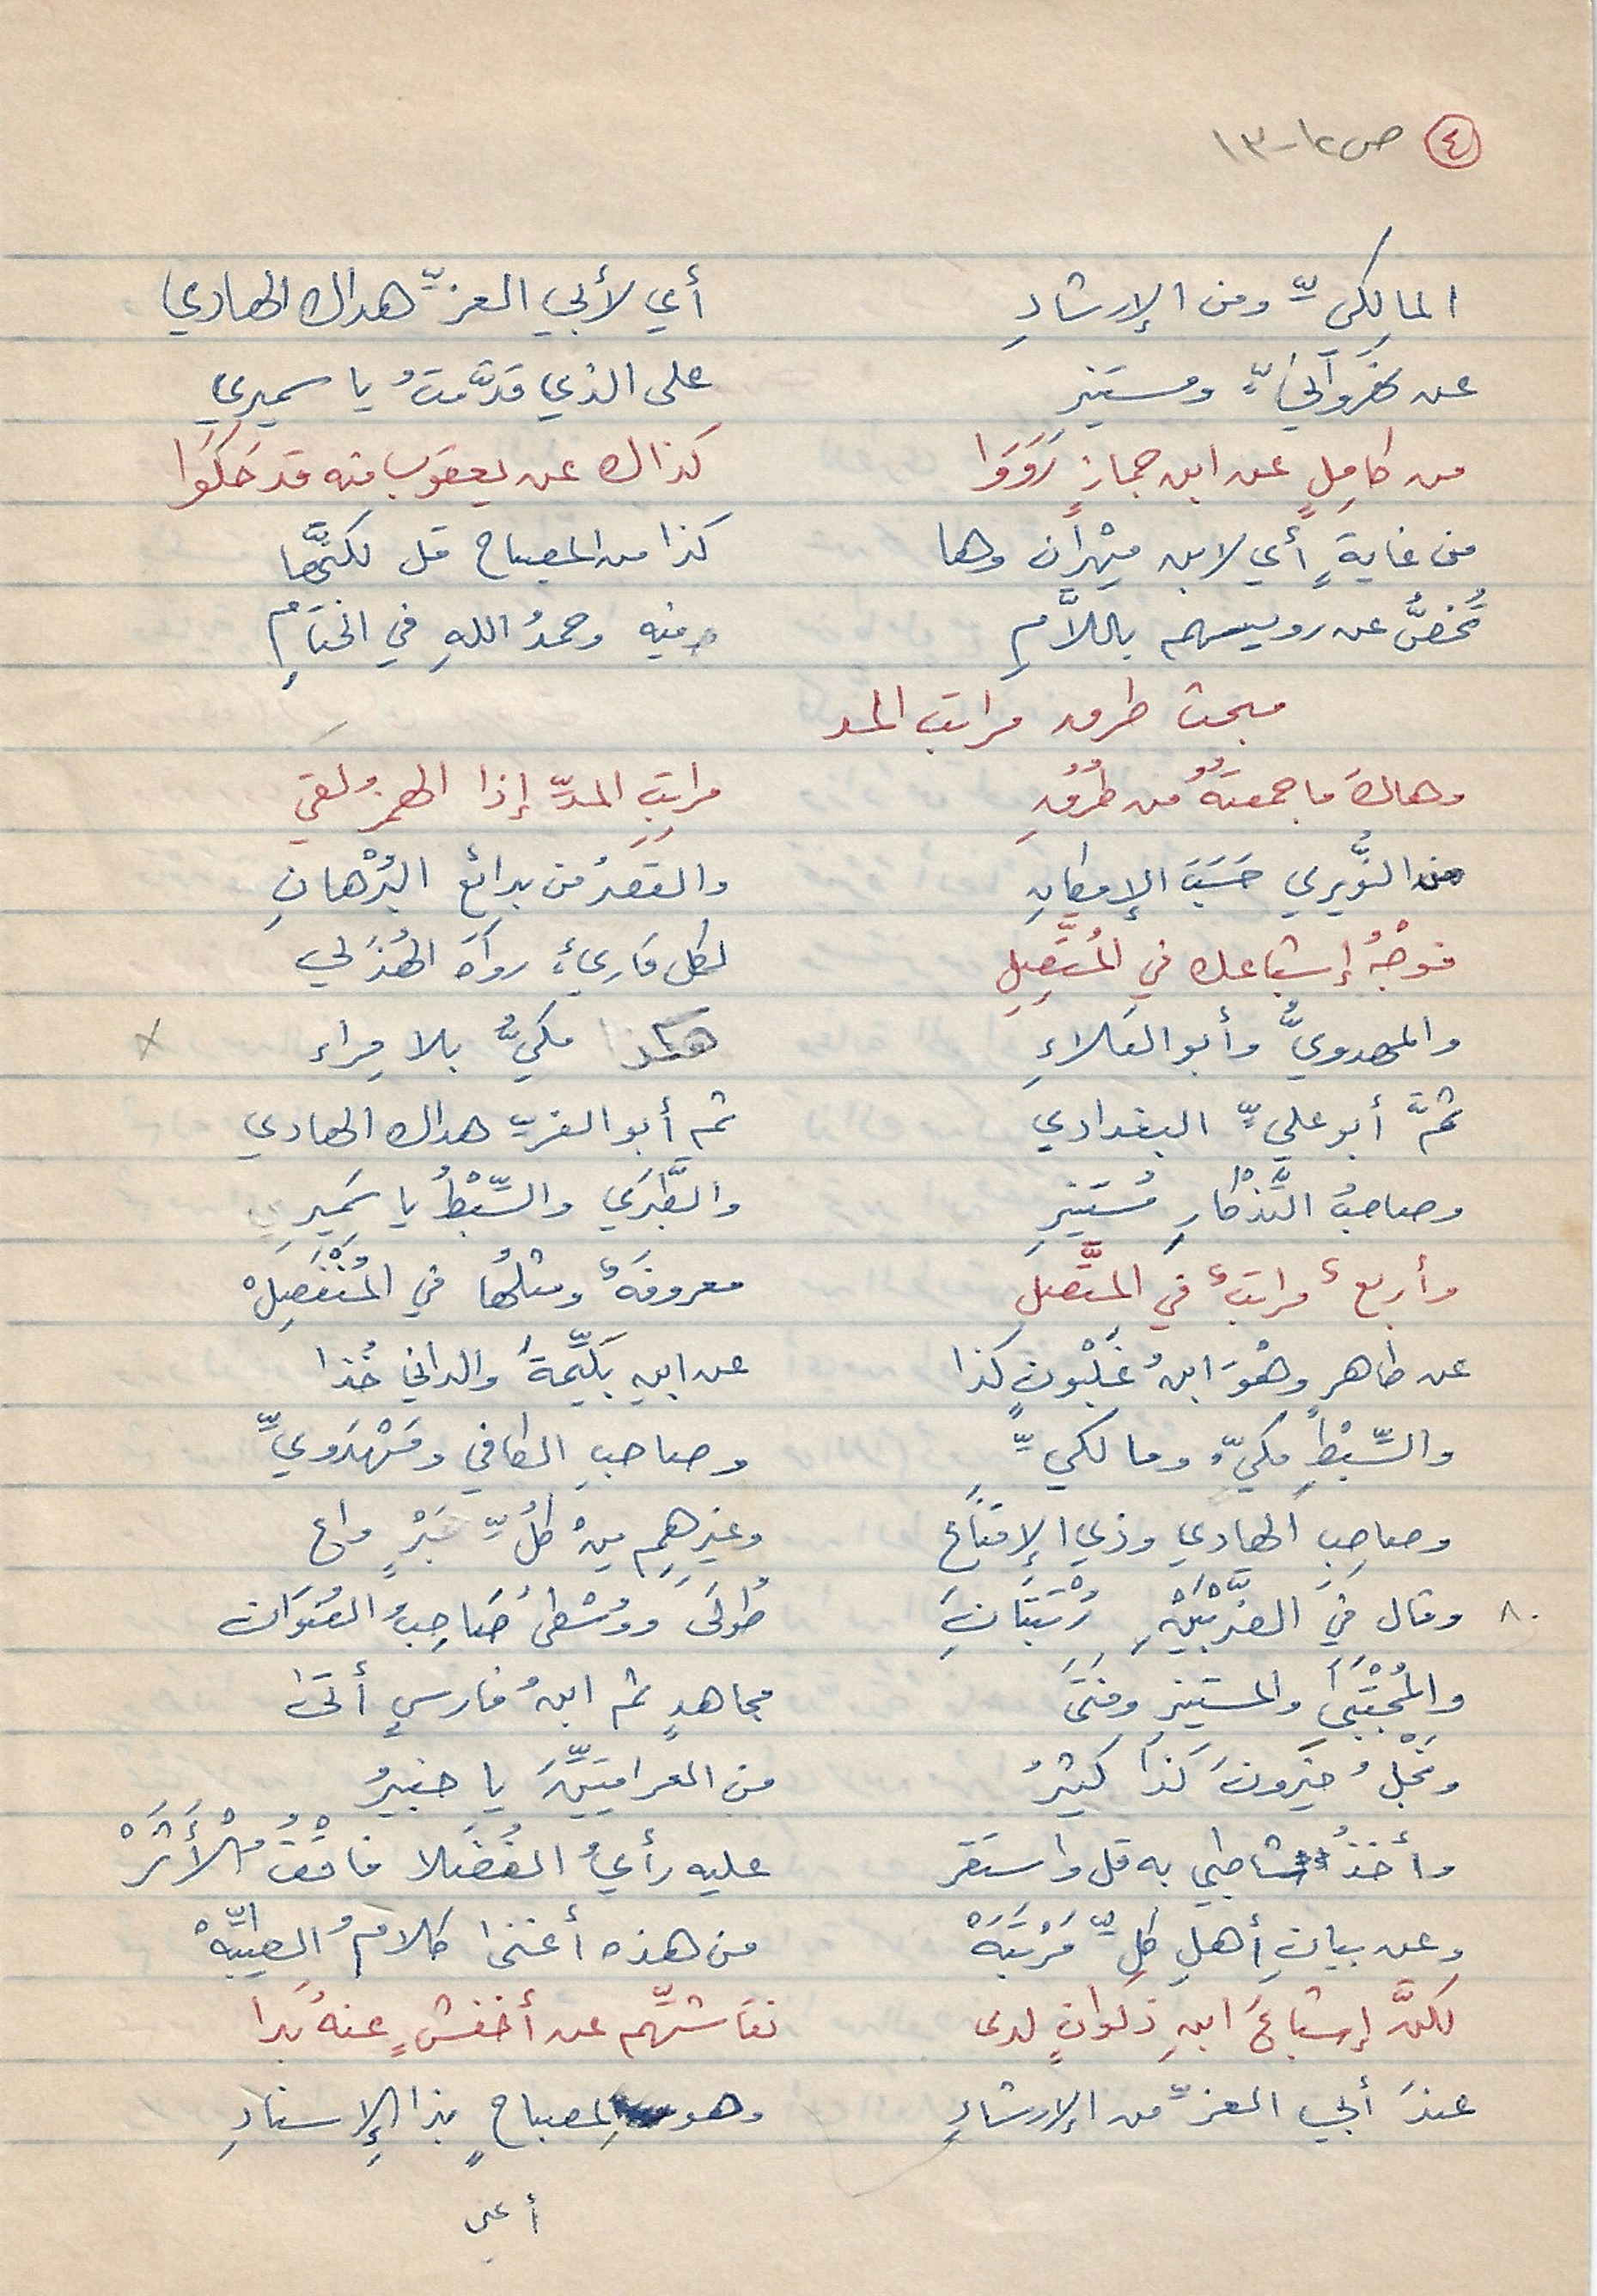 ٤ ص ١٢-١٣
المالِكِيِّ ومن الإرشادِ أي لأبي العزِّ هداك الهادي
عن ومستنيرِ على الذي قدَّمتُ يا سميري
من كامِلٍ عن ابن جمازٍ رَوَوَا كذاك عن يعقوب منه قد حَكَوا
من غايةٍ أي لابن مِهْران وها كذا من المصباح قل لكنَّها
تُخصُّ عن رويسهم باللاَّمِ منه وحمدُ اللهِ في الختامِ
مبحث طرق مراتب المد
وهاكَ ما جمعتُهُ من طُرُقِ مراتِبِ المدِّ إذا الهمزُ لقي
من النُّويري حَسَبَ الإمكانِ والقصدُ من بدائع البُرْهانِ
فوجْهُ إشباعك في المُتَّصِلِ لكل قاريءٍ رواه الهُذَلي
والمهدويُّ وأبو العَلاءِ هكذا مكيُّ بلا مِراء
ثمَّ أبو عليٍّ البغدادي ثم أبو العزِّ هداك الهادي
وصاحبُ التِّذْكارِ مُستنيرِ والطَّبَري والسِّبْطُ يا سَمِيرِي
وأربعٌ مراتبٌ في المتَّصلِ معروفةٌ ومثلُها في المُنْفَصِلْ
عن طاهرٍ وهْوَ ابنُ غَلْبُونٍ كذا عن ابنِ بَلِّيمةَ والداني خُذا
والسِّبْطِ مكيٍّ ومالكيِّ وصاحبِ الكافي ومَهْدَوِيِّ
وصاحِبِ الهادي وذي الإقناع وغيرِهِم مِنْ كُلِّ حَبْرٍ واع
٨٠ وقال في الضَّرْبَيْنِ رُتْبَتَانِ طُولَى ووُسْطى صَاحِبُ العُنوَان
والمُجْتَبَى والمستنيرِ وفَتَى مجاهدٍ ثم ابنُ فارسٍ أتى
ونَجْلُ خيرونَ كذا كثيرُ من العراقيِّينَ يا خبيرُ
وأخذُ شاطبي به قل واستقر عليه رأيُ الفُضَلا فاقْفُ الْأَثَرْ
وعن بيانِ أهلِ كلِّ مَرْتَبَهْ من هذه أغنى كلامُ الطيِّبهْ
لكنَّ إشباعَ ابنِ ذكوانٍ لدى نقاشِهِّم عن أخفشٍ عنهُ بَدا
عندَ أبي العزِّ من الإرشادِ وهو لمصباحٍ بذا الإسنادِ